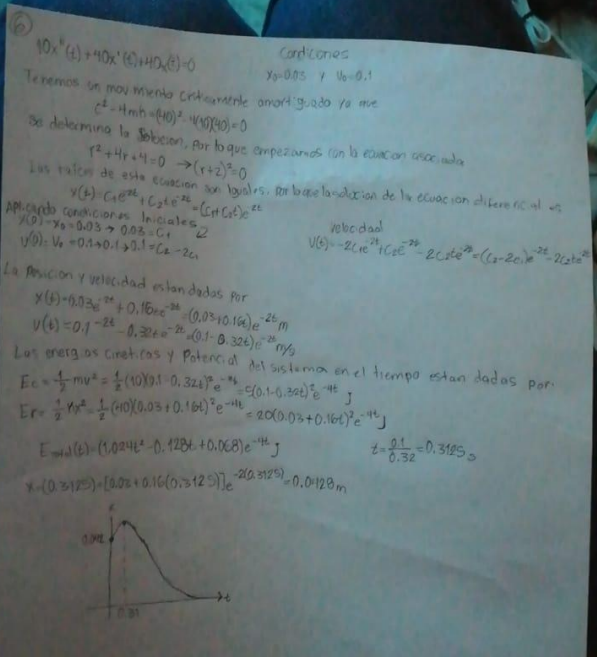 6
10x''(t)+40x'(t)+40x(t)=0
Condiciones
x₀=0.03 y V₀=0.1
Tenemos un movimiento críticamente amortiguado ya que
c²-4mk=(40)²-4(10)(40)=0
Se determina la solucion, por lo que empezamos con la ecuacion asociada
r²+4r+4=0 →(r+2)²=0
Las raíces de esta ecuacion son iguales, por lo que la solucion de la ecuacion diferencial es
x(t)=C₁e^-2t+C₂te^-2t=(C₁+C₂t)e^-2t
Aplicando condiciones iniciales
x(0)=x₀=0.03→0.03=C₁
V(0)=V₀=0.1→0.1→0.1=C₂-2C₁
velocidad
V(t)=-2C₁e^-2t+C₂e^-2t-2C₂te^-2t=(C₂-2C₁)e^-2t-2C₂te^-2t
La posicion y velocidad estan dadas por
x(t)=0.03e^-2t+0.16te^-2t=(0.03+0.16t)e^-2t m
V(t)=0.1^-2t-0.32te^-2t=(0.1-0.32t)e^-2t m/s
Las energias cineticas y Potencial del sistema en el tiempo estan dadas por.
Ec=½mv²=½(10)(0.1-0.32t)²e^-4t=5(0.1-0.32t)²e^-4t J
Er=½Kx²=½(40)(0.03+0.16t)²e^-4t=20(0.03+0.16t)²e^-4t J
Etotal(t)=(1.024t²-0.128t+0.068)e^-4t J
t=0.1/0.32=0.3125 s
x=(0.3125)=[0.03+0.16(0.3125)]e^-2(0.3125)=0.0428m
x
t
0.31